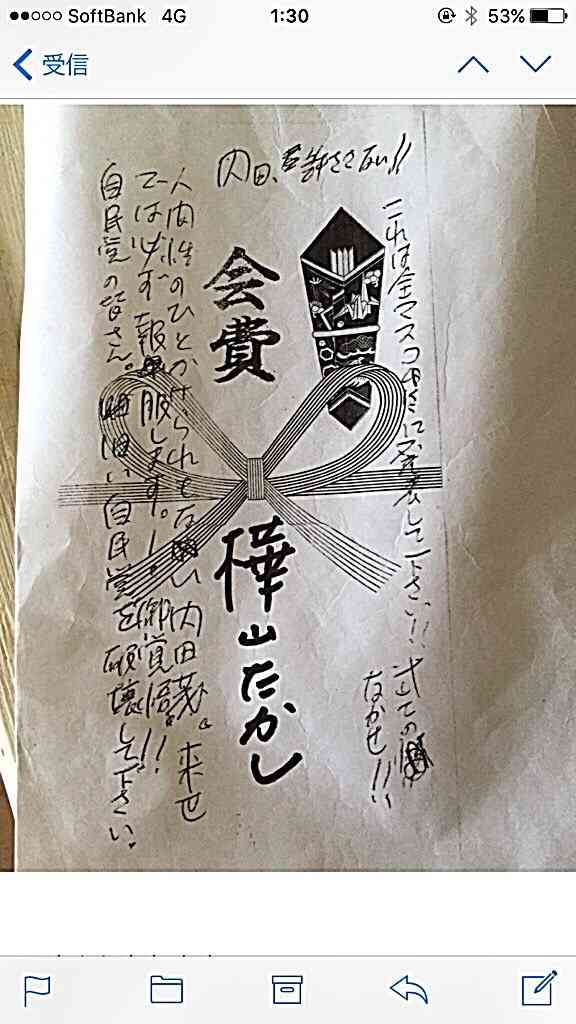 SoftBank 4G 1:30 53%
受信
内田、許さない!!
これは全マスコミに発表して下さい!!
なかせ!!
会費
樺山たかし
人間性のひとかけらもない内田茂。来世
では必ず報服します!御覚悟!!
自民党の皆さん。旧い自民党を破壊して下さい。